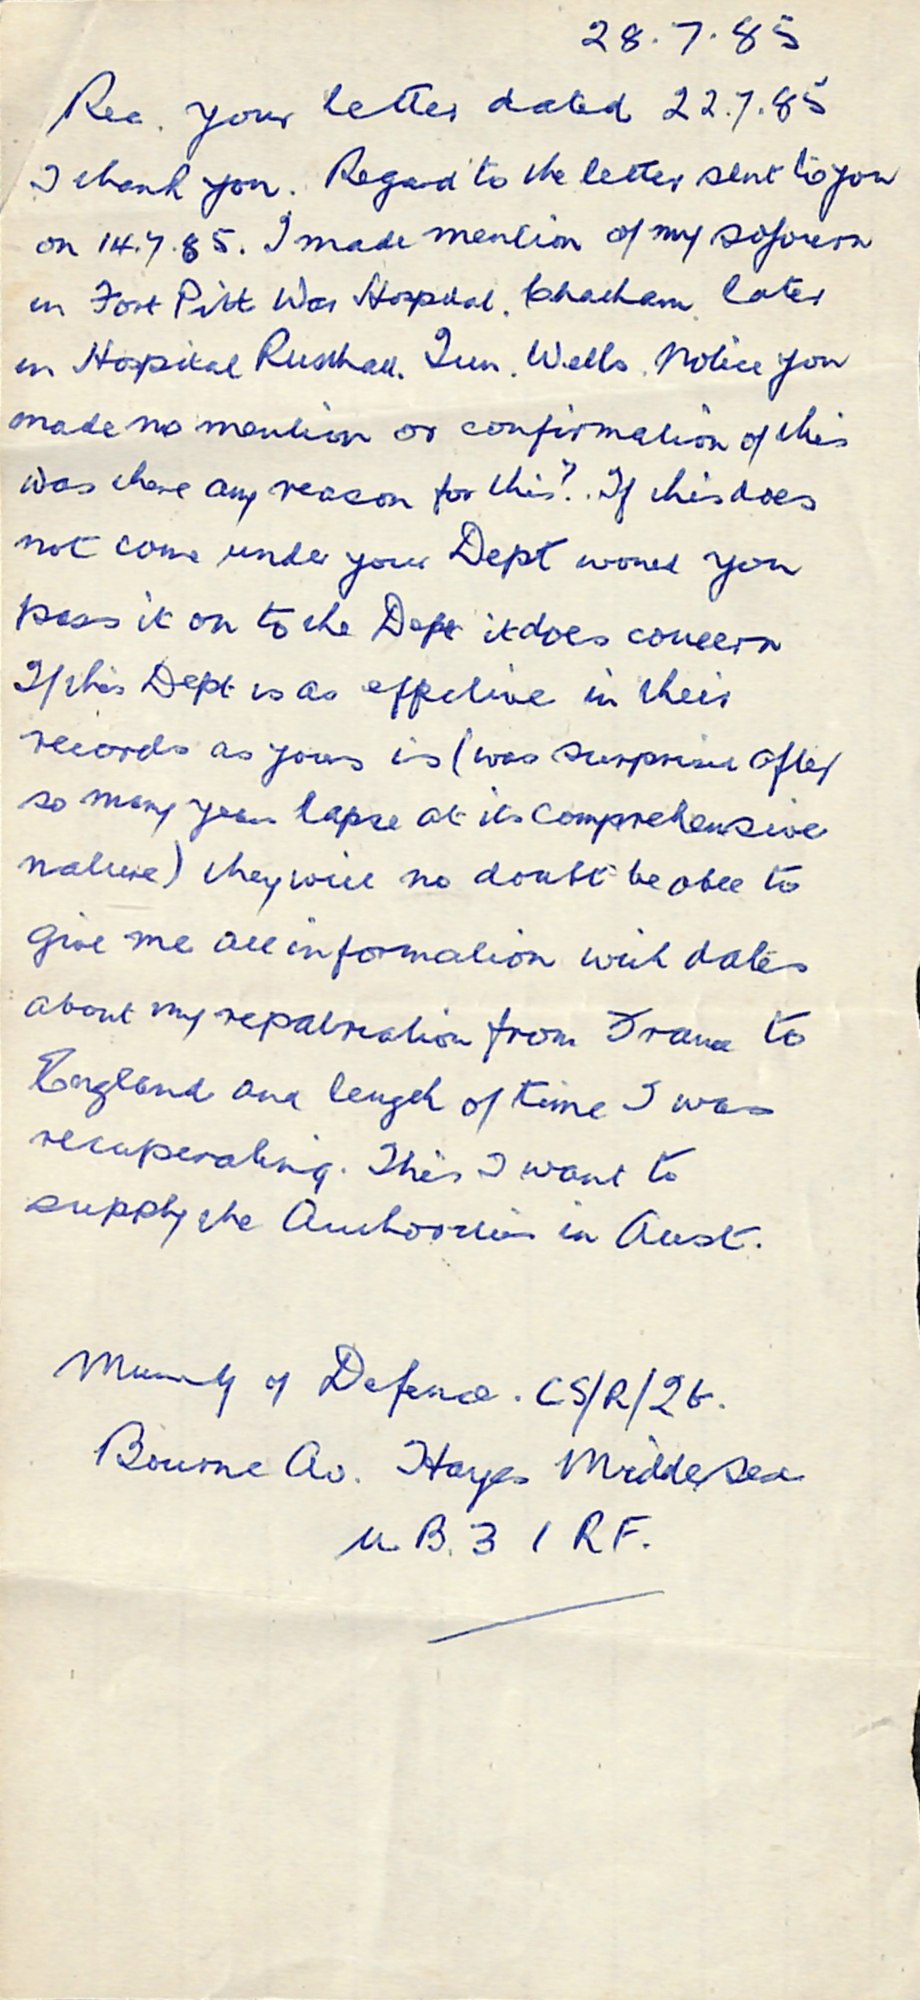 28.7.85
Rec. your letter dated 22.7.85
I thank you. Regard to the letter sent to you
on 14.7.85. I made mention of my sojourn
in Fort Pitt War Hospital. Chatham. later
in Hospital Rusthall. Tun. Wells. Notice you
made no mention or confirmation of this
was there any reason for this? If this does
not come under your Dept would you
pass it on to the Dept it does concern
If this Dept is as effective in their
records as yours is (was surprise after
so many years lapse at its comprehensive
nature) they will no doubt be able to
give me all information with dates
about my repatriation from France to
England and length of time I was
recuperating. This I want to
supply the Authorities in Aust.
Ministry of Defence. CS/R/2
Bourne Av. Hayes Middlesex
U.B.3 1RF.